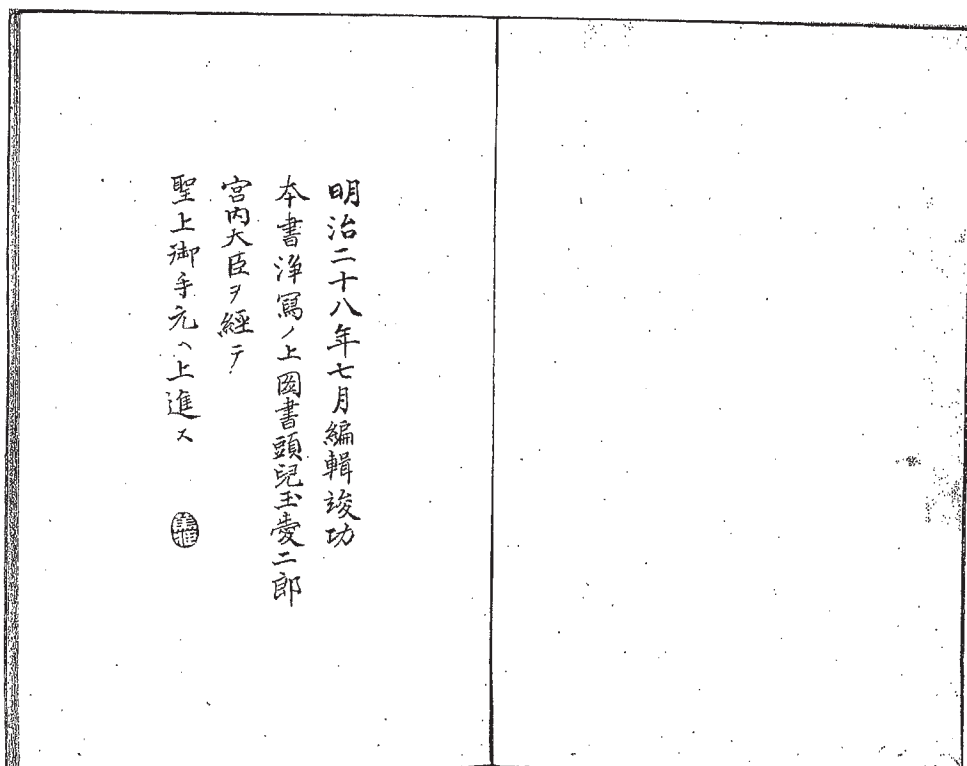 明治二十八年七月編輯竣功
本書浄寫ノ上図書頭児玉愛二郎
宮内大臣ヲ經テ
聖上御手元ヘ上進ス